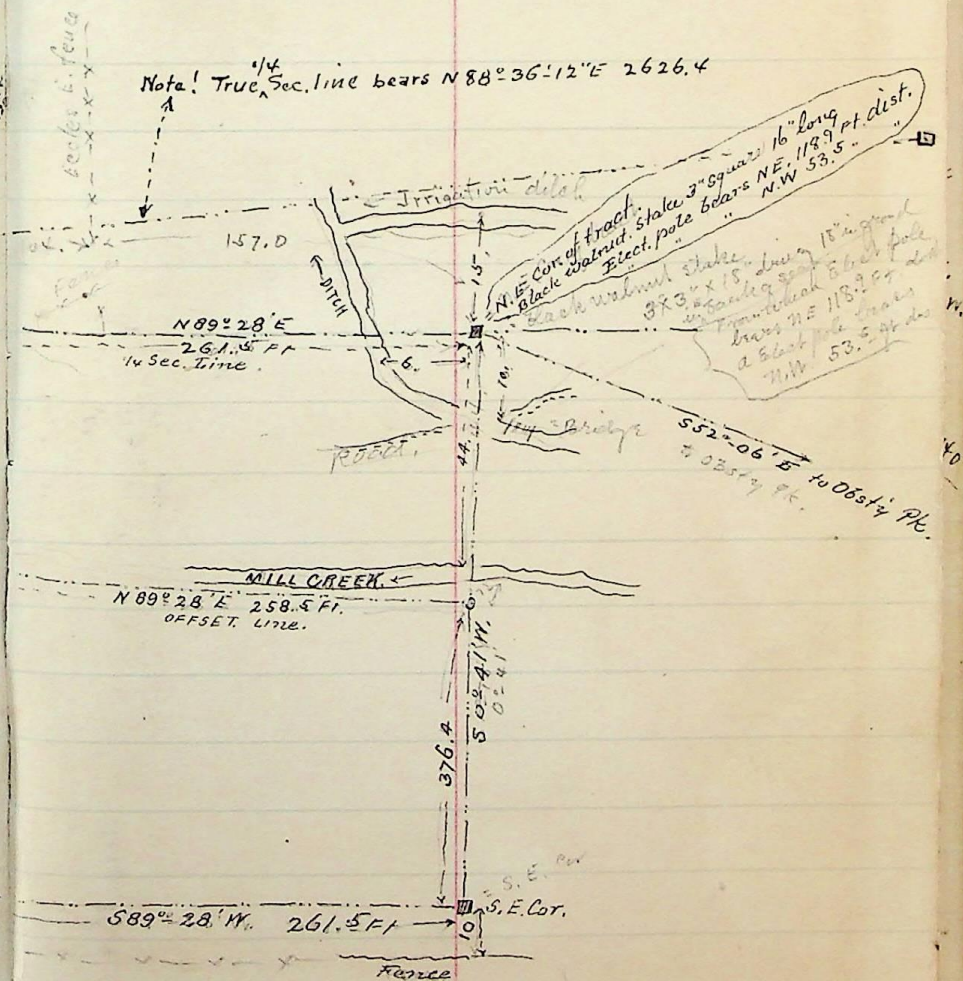 Eccles E. fence
Note! True 1/4 Sec. line bears N 88°-36'-12"E 2626.4
Irrigation ditch
157.0
DITCH
15.
N.E. Cor. of tract.
Black walnut. Stake 3" square 16" long
Elect. pole bears NE. 118.9 Ft. dist.
" " " N.W 53.5 "
Black walnut stake
3 X 3" X 18" driven 18" in ground
From which Elect pole
bears NE 118.9 Ft dist
a Elect pole bears
N.W. 53.5
Fence
N 89° 28' E
261.5 Ft
1/4 Sec. Line.
6.
10.
44.
Road.
Bridge
S52°-06' E to Obsty Pk.
to Obsty Pk.
40
MILL CREEK.
N 89° 28' E 258.5 Ft.
OFFSET. Line.
S 0°-41' W.
0°-41'
376.4
S. E. Cor
S.E. Cor.
S 89° 28' W. 261.5 Ft
10
Fence